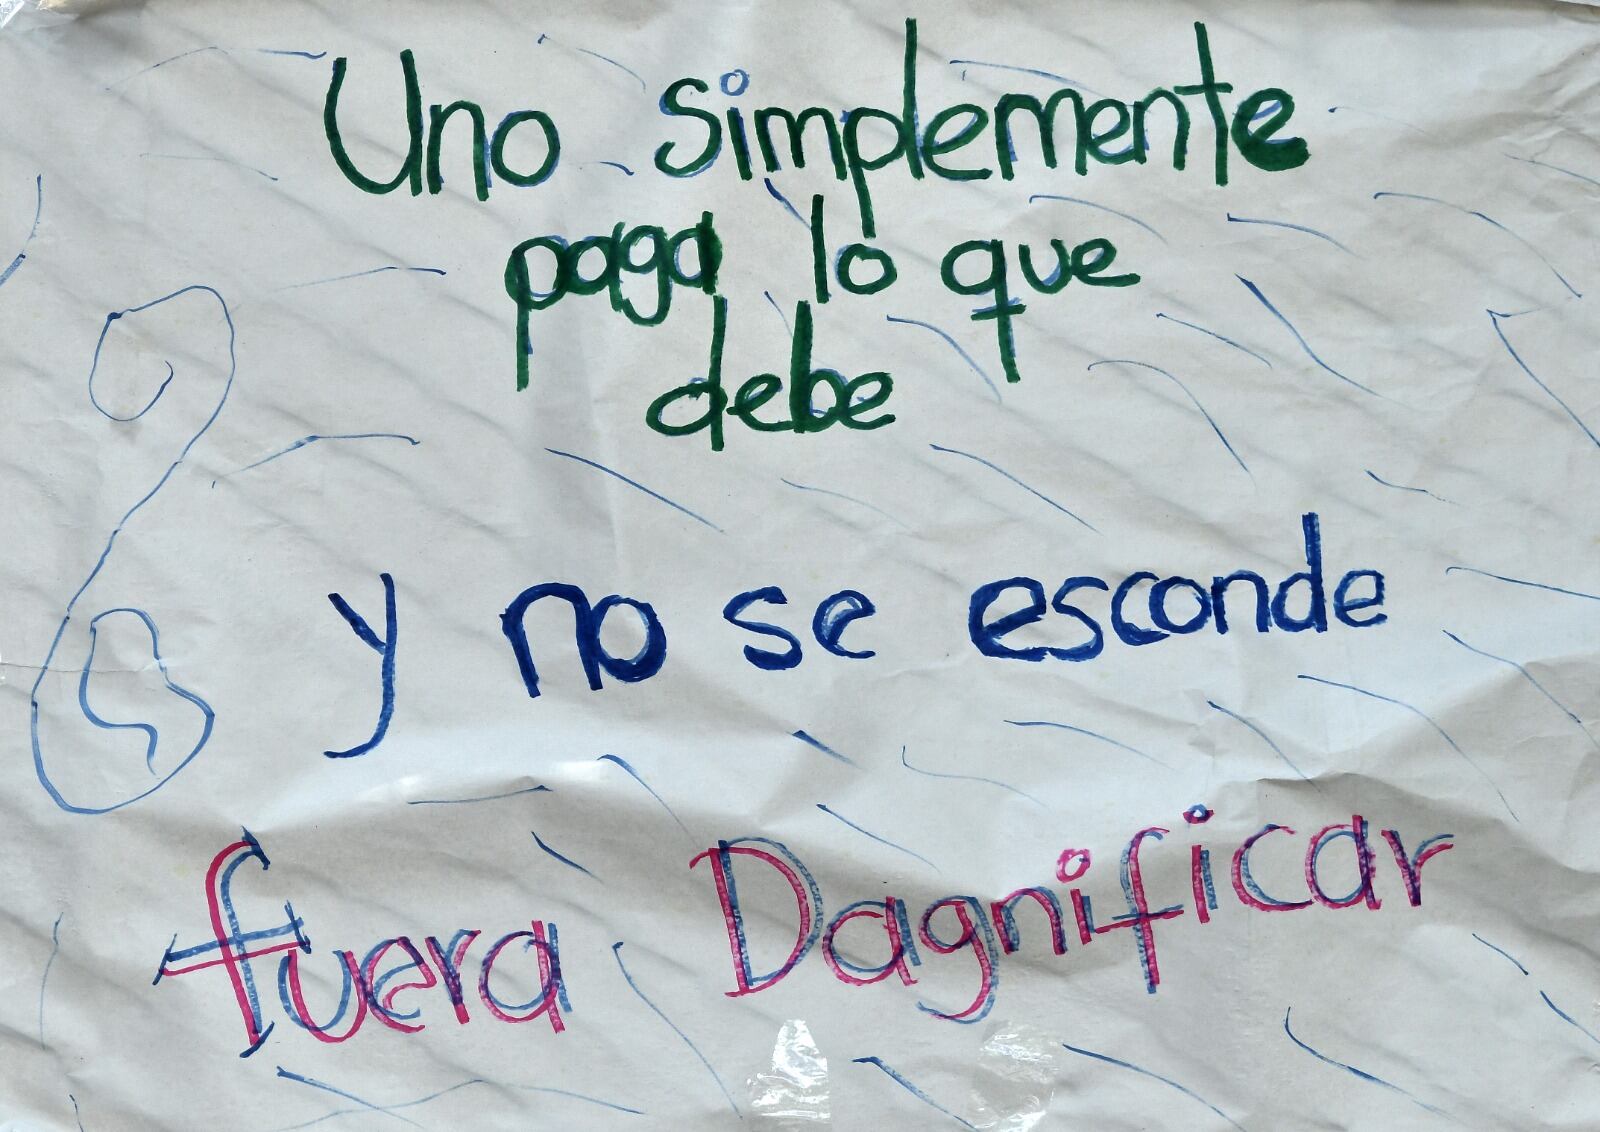 Uno simplemente
paga lo que
debe
y no se esconde
fuera Dagnificar